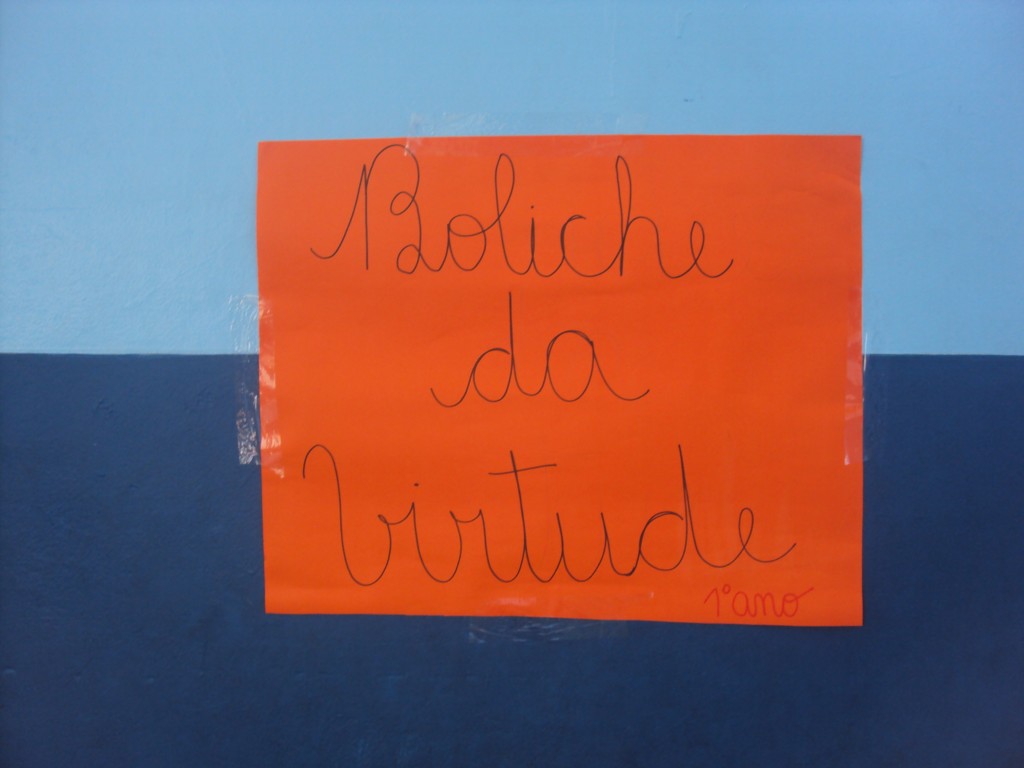 Boliche
da
Virtude
1º ano